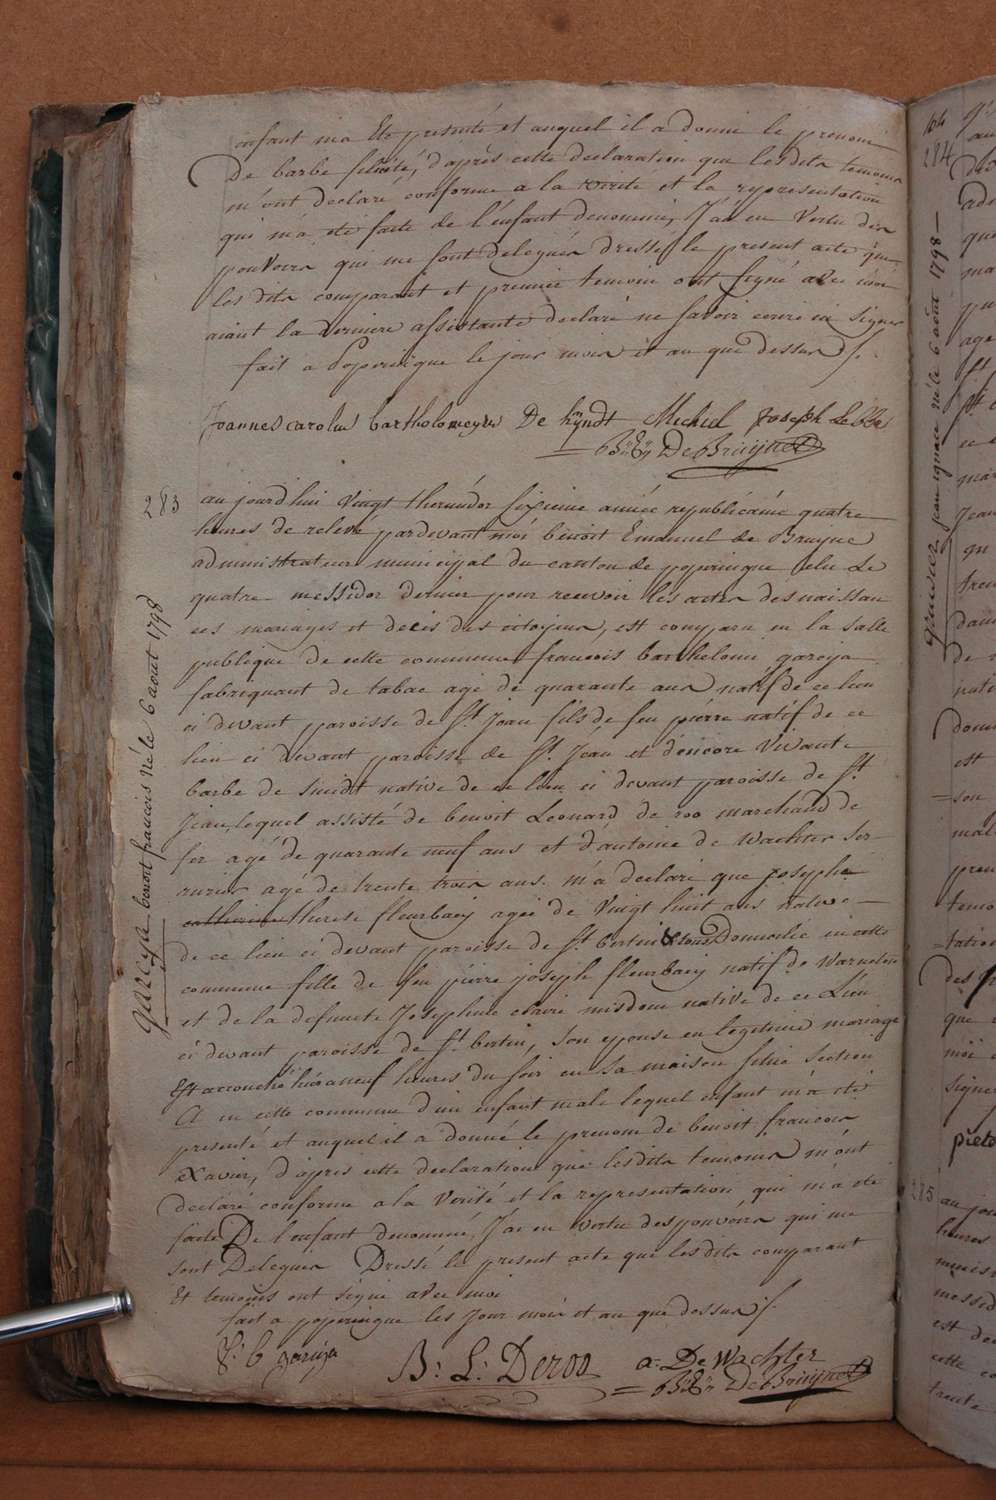 enfant m'a été presenté et auquel il a donné le prenom
de barbe felicité, d'après cette declaration que lesdits temoins
m'ont declaré conforme a la verité et la representation
qui m'a eté faite de l'enfant denommé, J'ai en vertu des
pouvoirs qui me sont delegués dressé le present acte que
les dits comparant et premier temoin ont signé avec moi
aiant la derniere assistante declaré ne savoir ecrire ni signer
fait a Poperingue le jour mois et an que dessus /.
Joannes carolus bartholomeyus De hÿndt Michiel Joseph
DeBruijne
283 au jourd'hui vingt thermidor sixieme année republicaine quatre
heures de relevé pardevant moi benoit Emanuel de Bruyne
administrateur municipal du canton de poperingue elu le
quatre messidor dernier pour recevoir les actes des naissan
ces mariages et décès des citoyens, est comparu en la salle
publique de cette commune francois barthelomé gareya
fabriquant de tabac agé de quarante ans natif de ce lieu
ci devant paroisse de St. Jean fils de feu pierre natif de ce
lieu ci devant paroisse de St. Jean et d'encore vivante
barbe de smidt native de ce lieu ci devant paroisse de St
Jean, lequel assisté de benoit Leonard de roo marchand de
fer agé de quarante neuf ans et d'antoine de Wachter ser
rurier agé de trente trois ans. m'a declaré que josephe
catherine therese fleurbaey agée de vingt huit ans native
de ce lieu ci devant paroisse de St. bertin & tous Domicilié en cette
commune fille de feu pierre joseph fleurbaey natif de Warneton
et de la defuncte Josephine claire misdom native de ce Lieu
ci devant paroisse de St. bertin, son epouse en legitime mariage
Est accouché hier a neuf heures du soir en sa maison situé section
A en cette commune d'un enfant male lequel enfant m'a eté
presenté et auquel il a donné le prenom de benoit francois
Xavier, d'après cette declaration que lesdits temoins m'ont
declaré conforme a la verité et la representation qui m'a eté
faite De l'enfant denommé, J'ai en vertu des pouvoirs qui me
sont Delegués Dressé le present acte que lesdits comparant
Et temoins ont signé avec moi
fait a poperingue les Jour mois et an que dessus /.
f: b gareija B: L: Deroo a: De Wachter
DeBruijne
gareya benoit francois né le 6 aout 1798
284
jean ignace né le 6 aout 1798
285